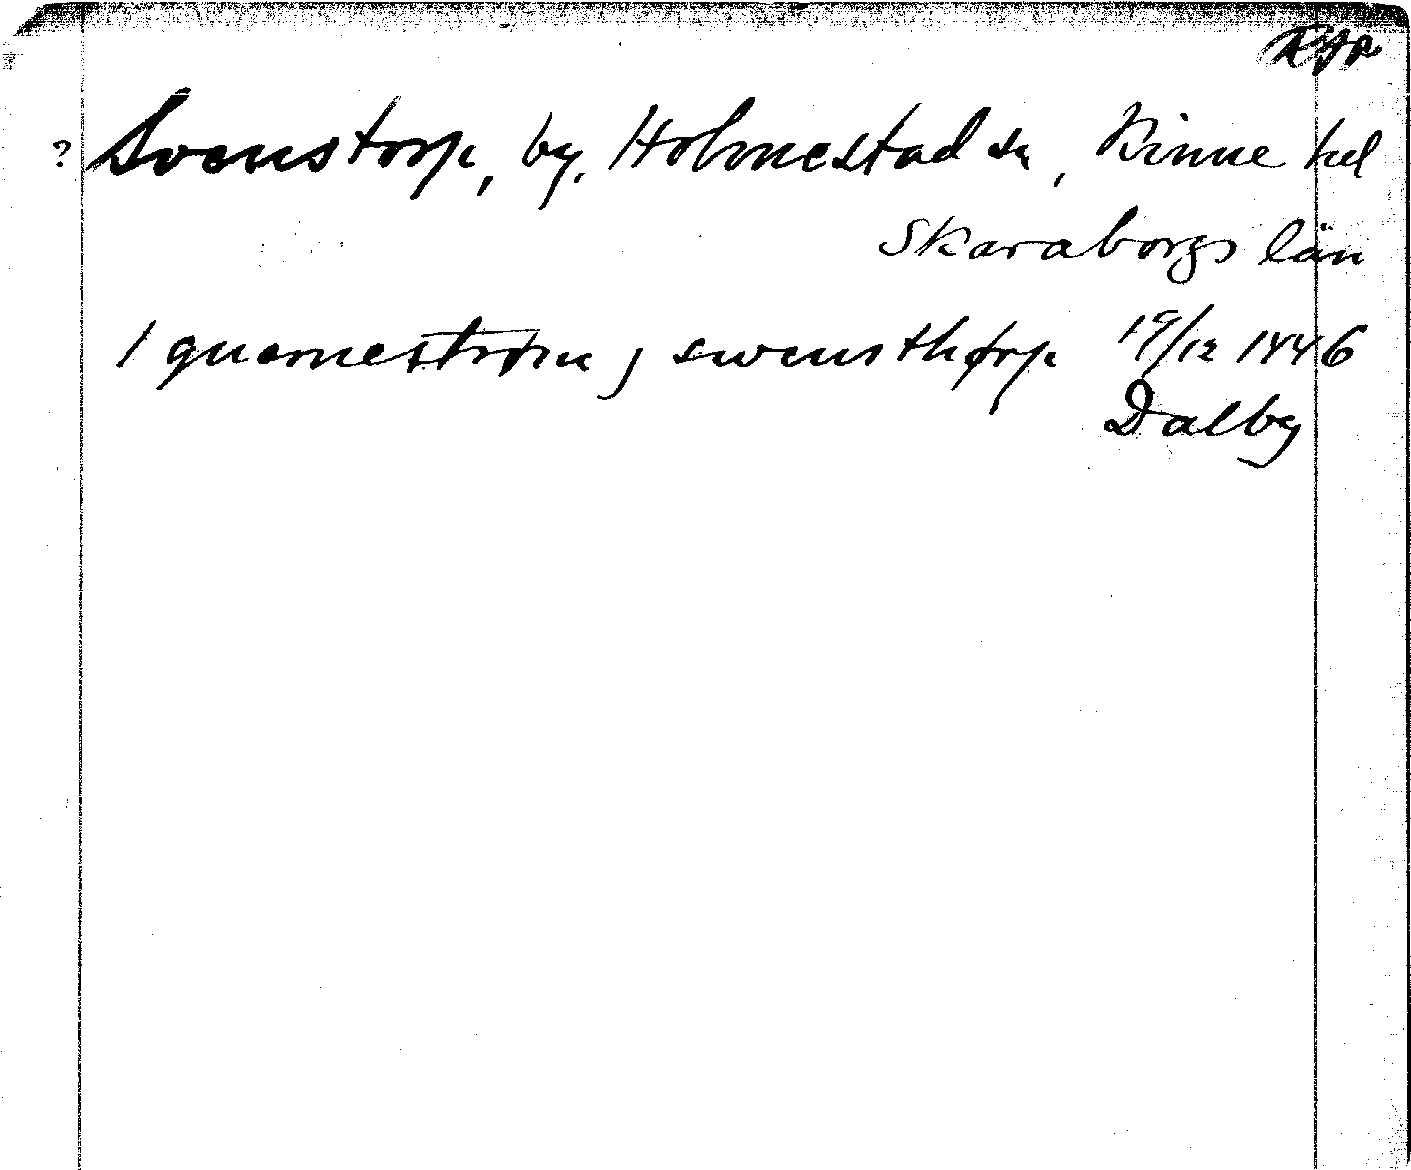 ? Svenstorp, by, Holmestad sn, Kinne hd
Skaraborgs län
1 quarnestrøm j swensthørp 19/12 1446
Dalby